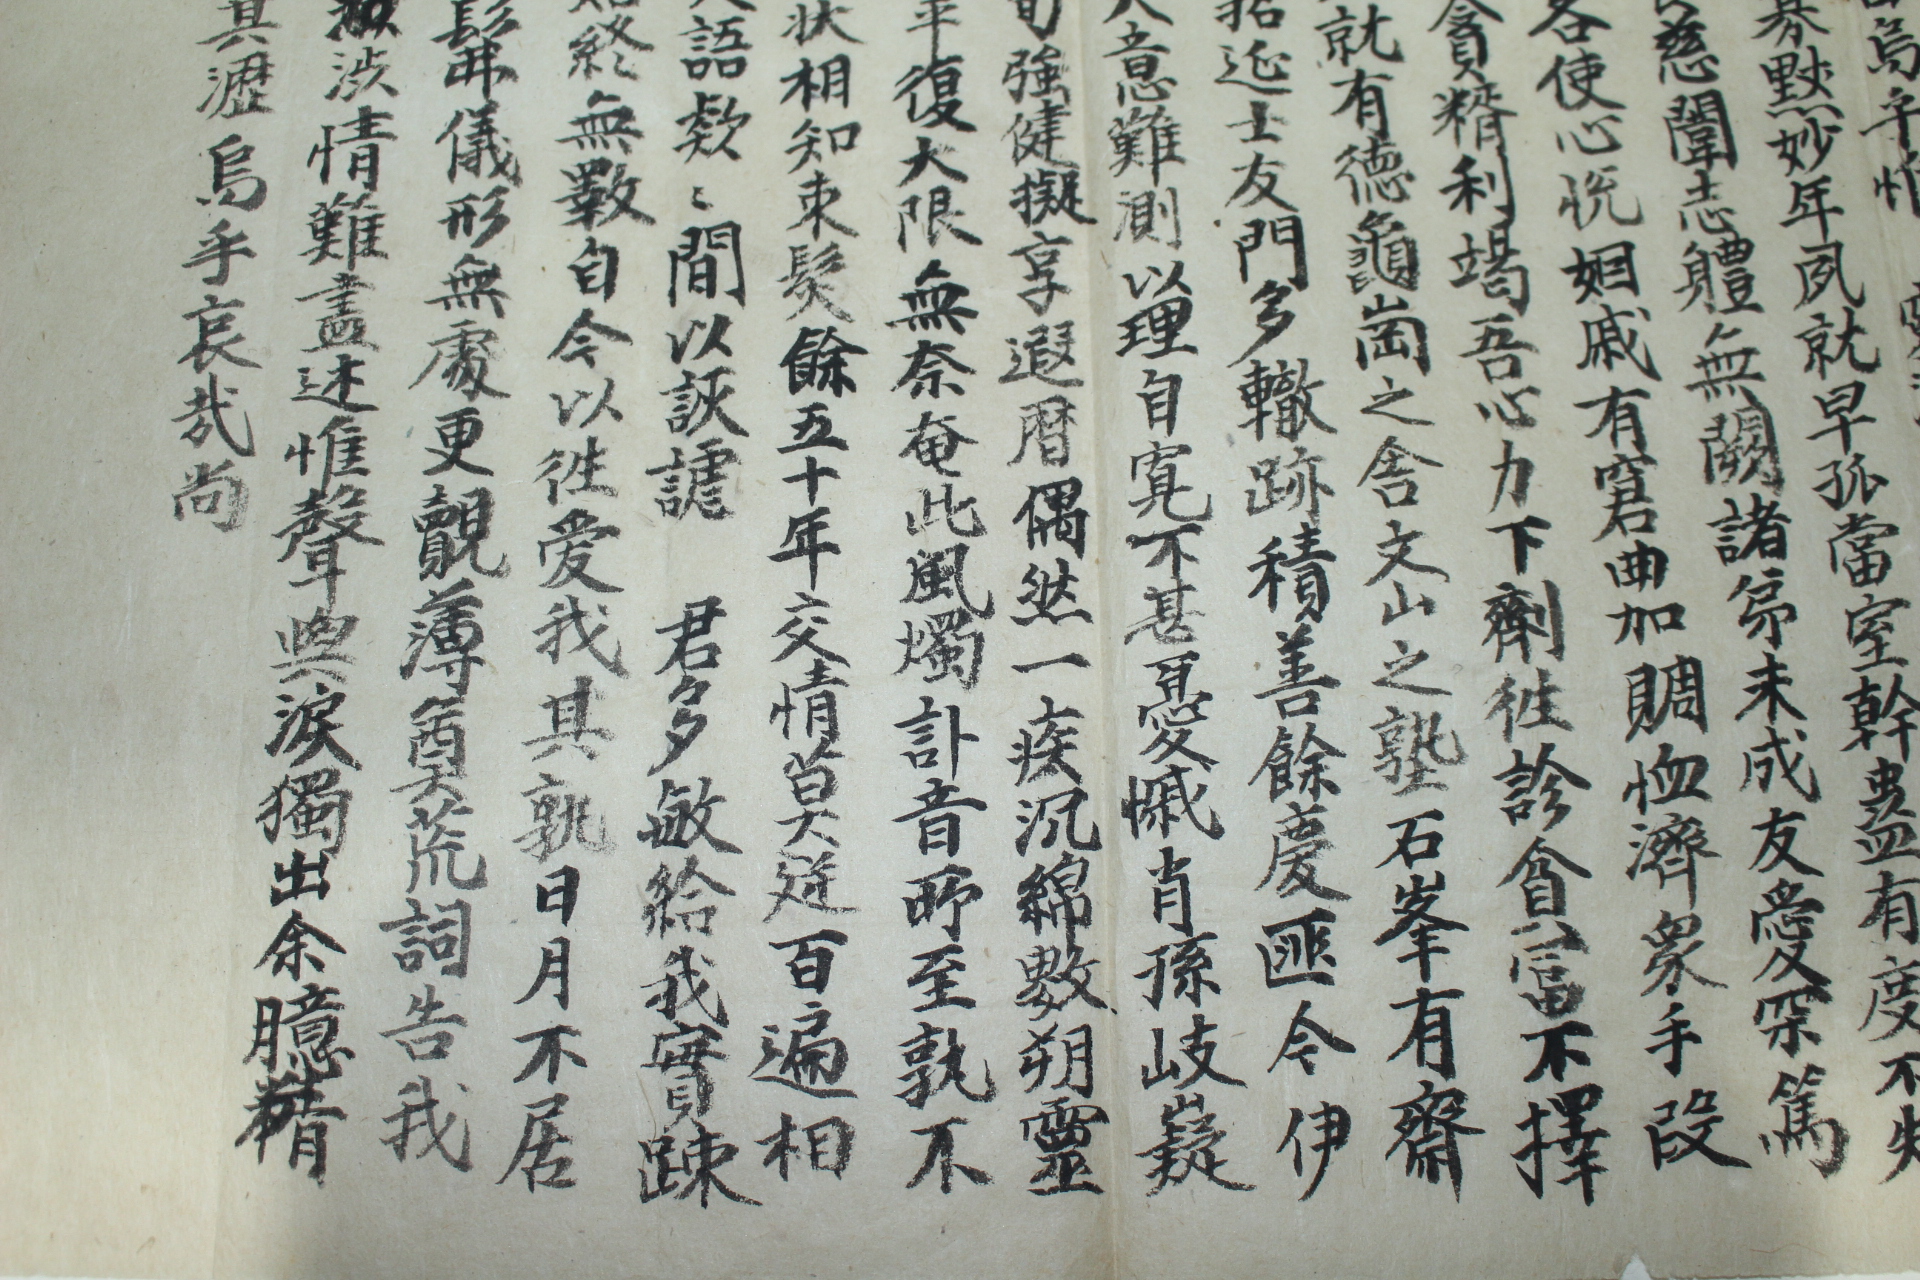 烏乎惟
棊默妙年夙就早孤當室幹蠱有度不失
慈闈志軆無闕諸弟未成友愛深篤
各使心恍姻戚有窘曲加賙恤濟衆手段
貪糈利竭吾心力下劑徃診貧富不擇
就有德龜崗之舍文山之塾石峯有齋
拓延士友門多轍跡積善餘慶匪今伊
人意難測以理自寬不甚憂慽肖孫岐嶷
旬強健擬享遐曆偶然一疾沉綿數朔靈
平復大限無奈奄此風燭訃音所至孰不
狀相知束髮餘五十年交情莫逆百遍相
語欵〻間以詼謔 君多敏給我實踈
始終無斁自今以徃愛我其孰日月不居
髴儀形無處更覿薄奠荒詞告我
涉情難盡述惟聲與淚獨出余臆精
其瀝烏乎哀哉尚